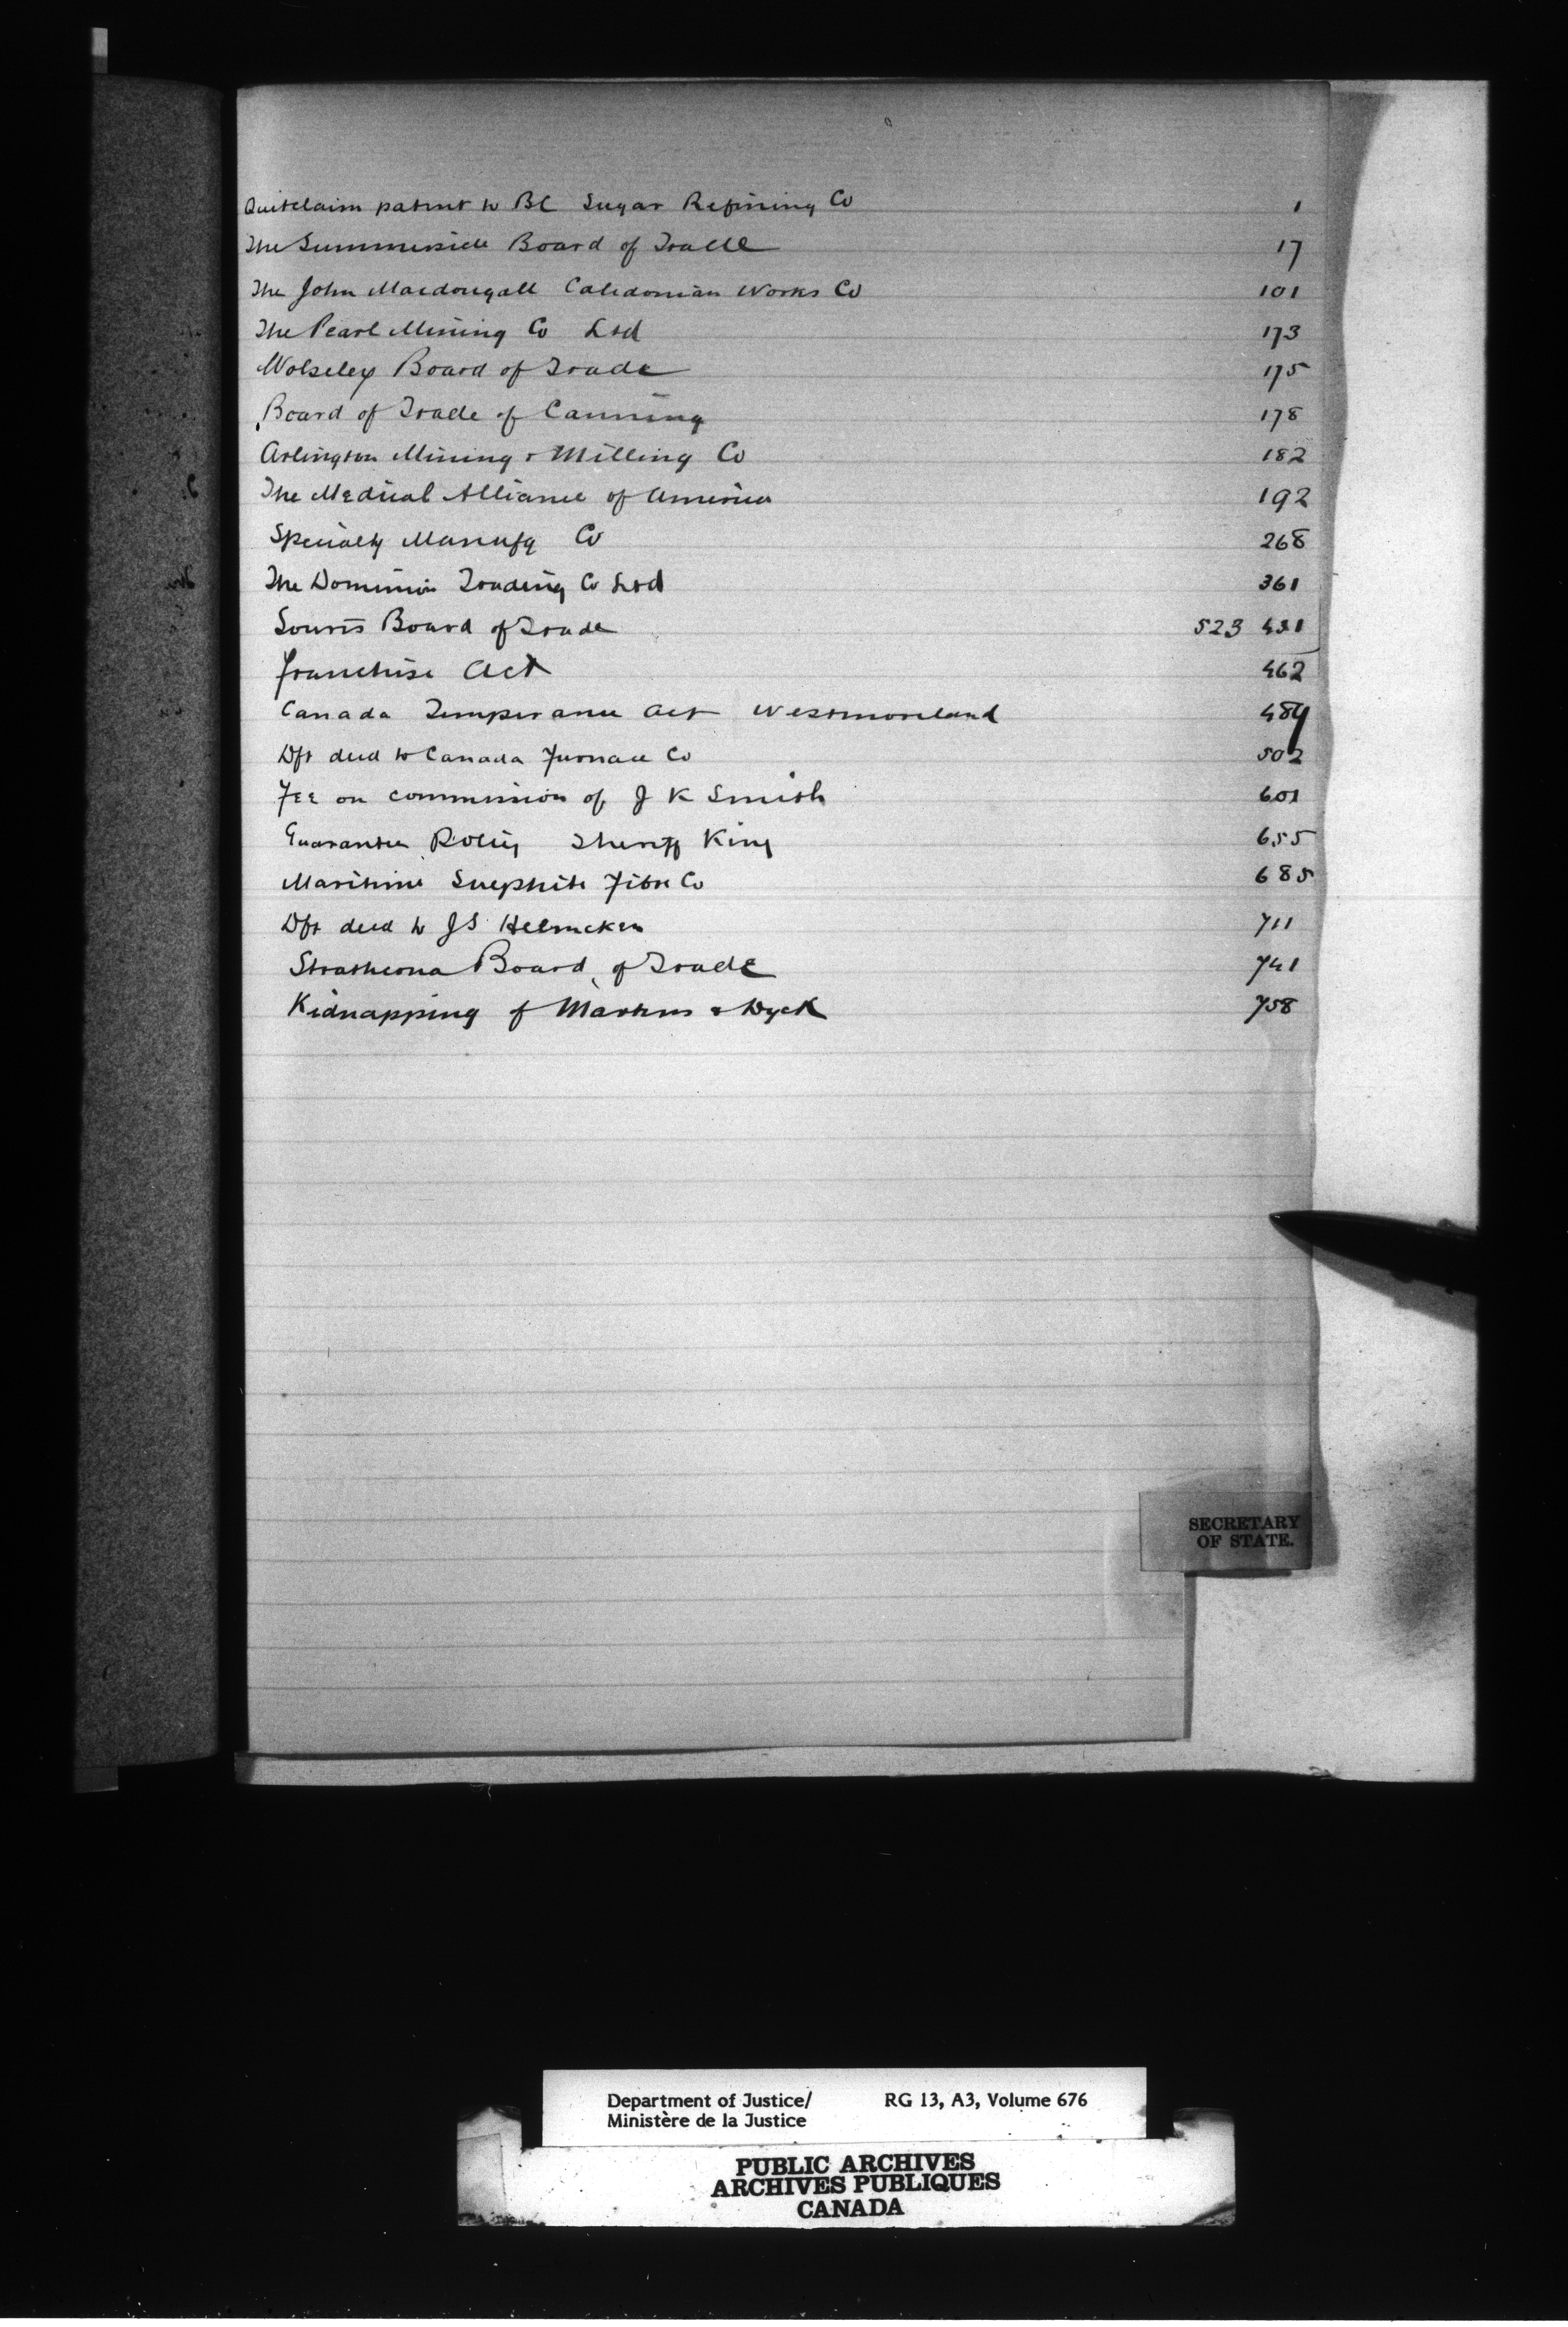 Quitclaim patent to BC Sugar Refining Co 1
The Summerside Board of Trade 17
The John Macdougall Caledonian Works Co 101
The Pearl Mining Co Ltd 173
Wolseley Board of Trade 175
Board of Trade of Canning 178
Arlington Mining & Milling Co 182
The Medical Alliance of America 192
Specialty Manufg Co 268
The Dominion Trading Co Ltd 361
Souris Board of Trade 523 431
Franchise Act 462
Canada Temperance Act Westmoreland 484
Dft deed to Canada Furnace Co 502
Fee on commission of J K Smith 601
Guarantee Policy Sheriff King 655
Maritime Sulphite Fibre Co 685
Dft deed to JS Helmcken 711
Strathcona Board of Trade 741
Kidnapping of Martens & Dyck 758
SECRETARY
OF STATE.
Department of Justice/ RG 13, A3, Volume 676
Ministère de la Justice
PUBLIC ARCHIVES
ARCHIVES PUBLIQUES
CANADA